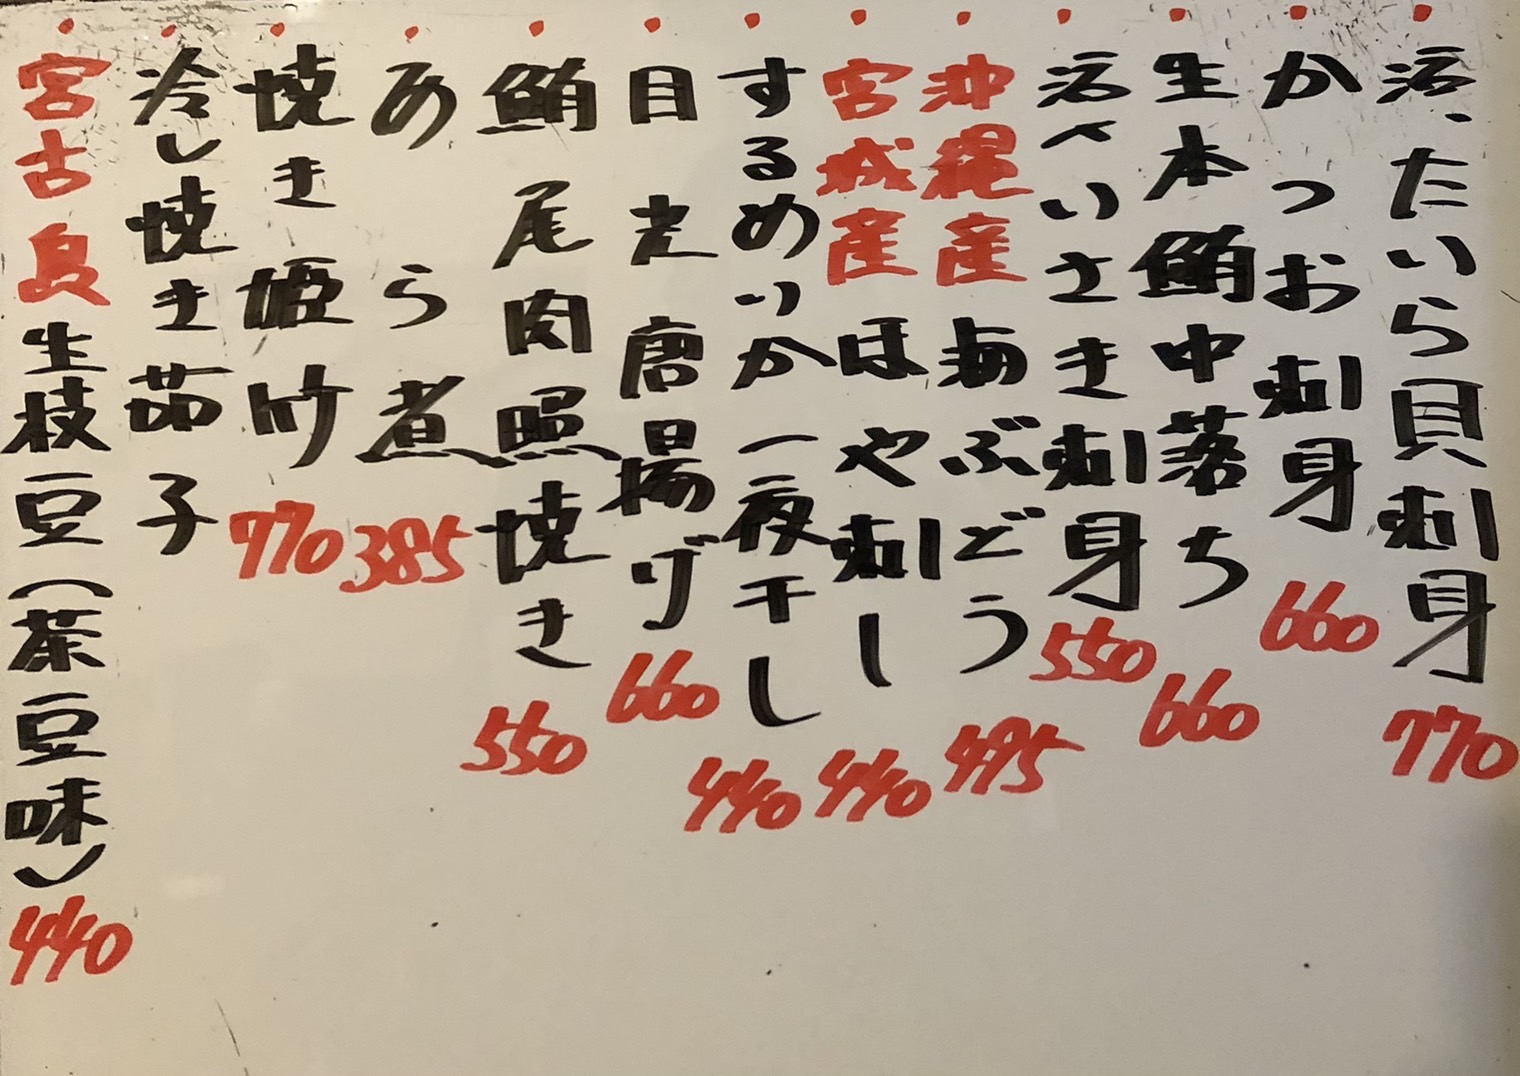 ・活、たいら貝刺身 770
・かつお刺身 660
・生本鮪中落ち 660
・活〆いさき刺身 550
・沖縄産 海ぶどう 495
・宮城産 ほや刺し 440
・するめいか一夜干し 440
・目光唐揚げ 660
・鮪尾肉照焼き 550
・あら煮 385
・焼き姫竹 770
・冷し焼き茄子
・宮古島生枝豆(茶豆味) 440